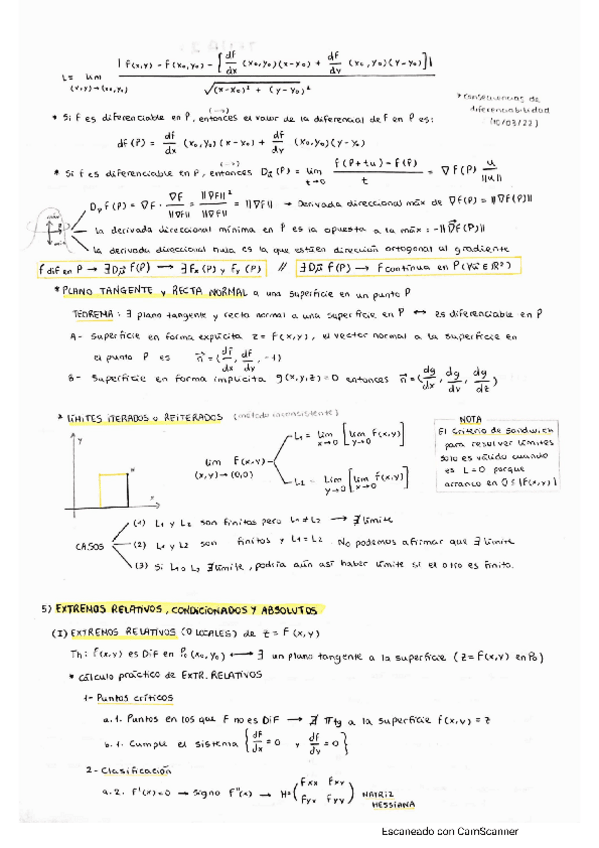 L = lim (x,y)→(x₀,y₀) | f(x,y) - f(x₀,y₀) - [ df/dx (x₀,y₀)(x-x₀) + df/dy (x₀,y₀)(y-y₀) ] | / √((x-x₀)² + (y-y₀)²)
* consecuencias de
diferenciabilidad
(10/03/22)
* Si f es diferenciable en P, entonces el valor de la diferencial de f en P es:
df(P) = df/dx (x₀,y₀)(x-x₀) + df/dy (x₀,y₀)(y-y₀)
* Si f es diferenciable en P, entonces Dū(P) = lim t→0 f(P+tu) - f(P) / t = ∇f(P) u/||u||
Dᵤf(P) = ∇f · ∇f/||∇f|| = ||∇f||²/||∇f|| = ||∇f|| → Derivada direccional máx de ∇f(P) = ||∇f(P)||
la derivada direccional mínima en P es la opuesta a la máx: -||∇f(P)||
la derivada direccional nula es la que está en dirección ortogonal al gradiente
f dif en P → ∃Dū f(P) → ∃fx(P) y fy(P) // ∃Dū f(P) → f continua en P (∀ū∈R²)
* PLANO TANGENTE y RECTA NORMAL a una superficie en un punto P
TEOREMA: ∃ plano tangente y recta normal a una superficie en P ↔ es diferenciable en P
A- Superficie en forma explícita z = f(x,y), el vector normal a la superficie en
el punto P es n⃗ = (df/dx, df/dy, -1)
B- Superficie en forma implícita g(x,y,z) = 0 entonces n⃗ = (dg/dx, dg/dy, dg/dz)
* LÍMITES ITERADOS o REITERADOS (método inconsistente)
NOTA
El criterio de sandwich
para resolver límites
solo es válido cuando
es L=0 porque
arranco en 0≤|f(x,y)|
y
x
lim (x,y)→(0,0) f(x,y)
L₁ = lim x→0 [ lim y→0 f(x,y) ]
L₂ = lim y→0 [ lim x→0 f(x,y) ]
CASOS
(1) L₁ y L₂ son finitos pero L₁ ≠ L₂ → ∄ límite
(2) L₁ y L₂ son finitos y L₁ = L₂. No podemos afirmar que ∃ límite
(3) Si L₁ o L₂ ∄ límite, podría aún así haber límite si el otro es finito.
5) EXTREMOS RELATIVOS, CONDICIONADOS Y ABSOLUTOS
(I) EXTREMOS RELATIVOS (O LOCALES) de z = f(x,y)
Th: f(x,y) es Dif en P₀(x₀,y₀) ↔ ∃ un plano tangente a la superficie (z = f(x,y) en P₀)
* Cálculo práctico de EXTR. RELATIVOS
1- Puntos críticos
a.1. Puntos en los que f no es DIF → ∄ πtg a la superficie f(x,y) = z
b.1. Cumple el sistema { df/dx = 0 y df/dy = 0 }
2- Clasificación
a.2. f'(x)=0 → signo f''(x) → H = ( fxx fxy
fyx fyy ) MATRIZ
HESSIANA
Escaneado con CamScanner